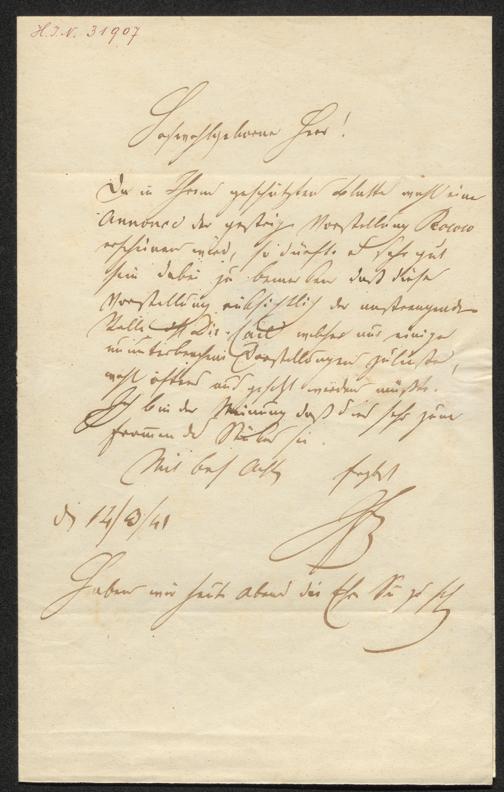 H.I.N. 31907
Hochwohlgeborner Herr!
Da in Ihrem geschätzten Blatte wohl eine
Annonce der gestrig Vorstellung Rococo
erscheinen wird, so dürfte es sehr gut
sein dabei zu bemerken daß diese
Vorstellung rücksichtlich der anstrengenden
Rolle welcher nur einige
ununterbrochene Vorstellungen zuließe,
wohl öfters ausgesetzt werden müßte.
Ich bin der Meinung daß dies sehr zum
Frommen des Stückes sei.
Mit Acht
d 14/3/41
Haben wir heute Abend die Ehre Sie zu seh